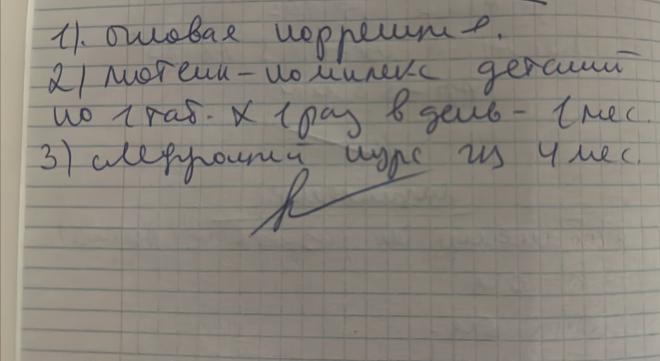 1). очковая коррекция.
2) лютеин-комплекс детский
по 1 таб. х 1 раз в день - 1 мес.
3) следующий курс ч/з 4 мес.